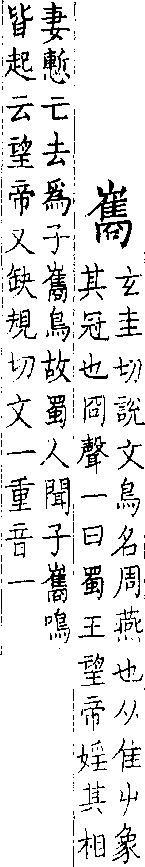 巂
玄圭切說文鳥名周燕也从隹屮象
其冠也㕯聲一曰蜀王望帝婬其相
妻慙亡去爲子巂鳥故蜀人聞子巂鳴
皆起云望帝又缺規切文一重音一